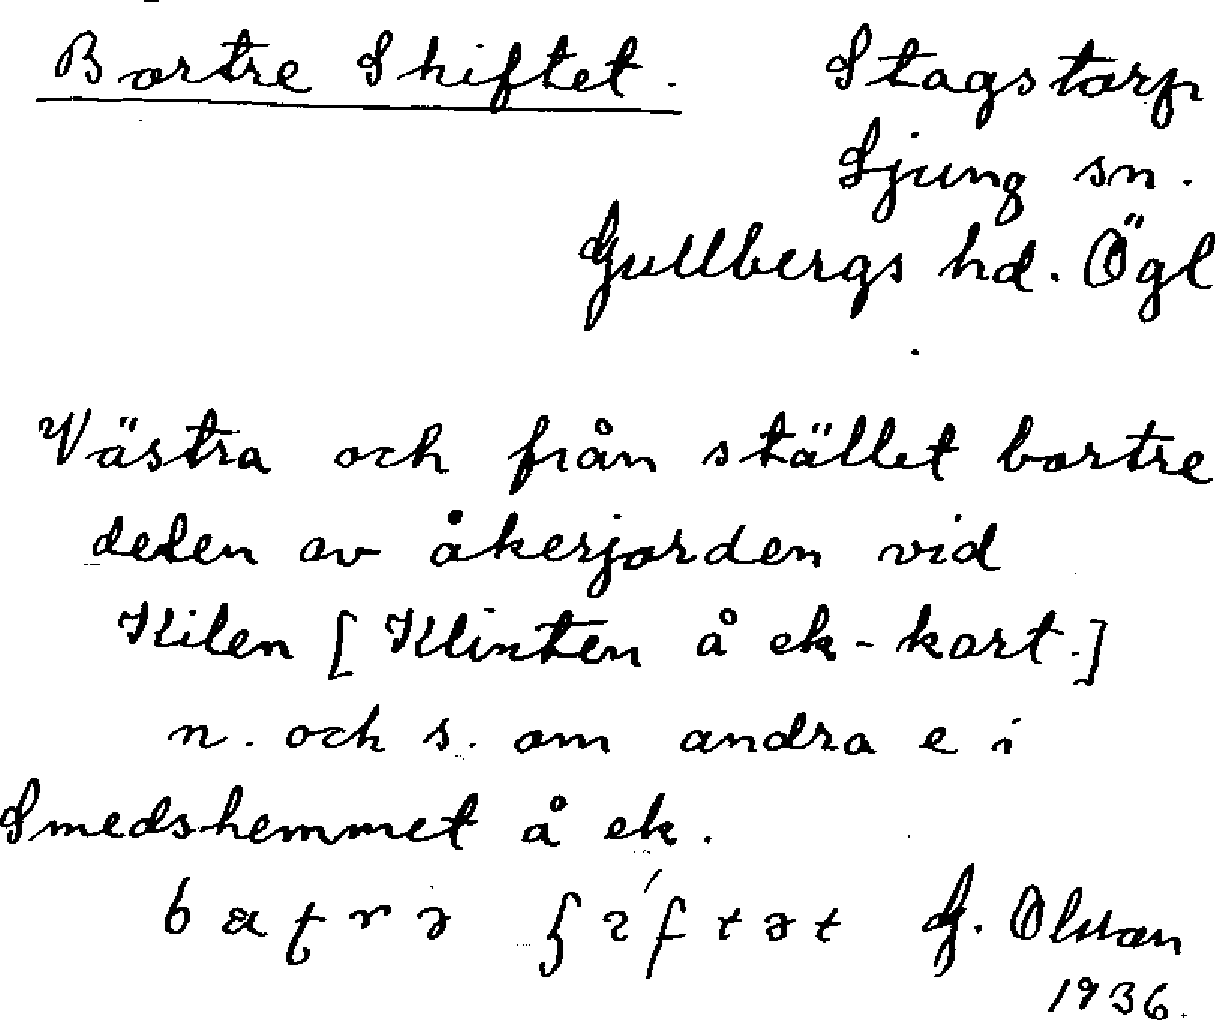 Bortre Skiftet. Stagstorp
Ljung sn.
Gullbergs hd. Ögl
Västra och från stället bortre
delen av åkerjorden vid
Kilen [Klinten å ek-kart.]
n. och s. om andra e i
Smedshemmet å ek.
G. Olsson
1936.